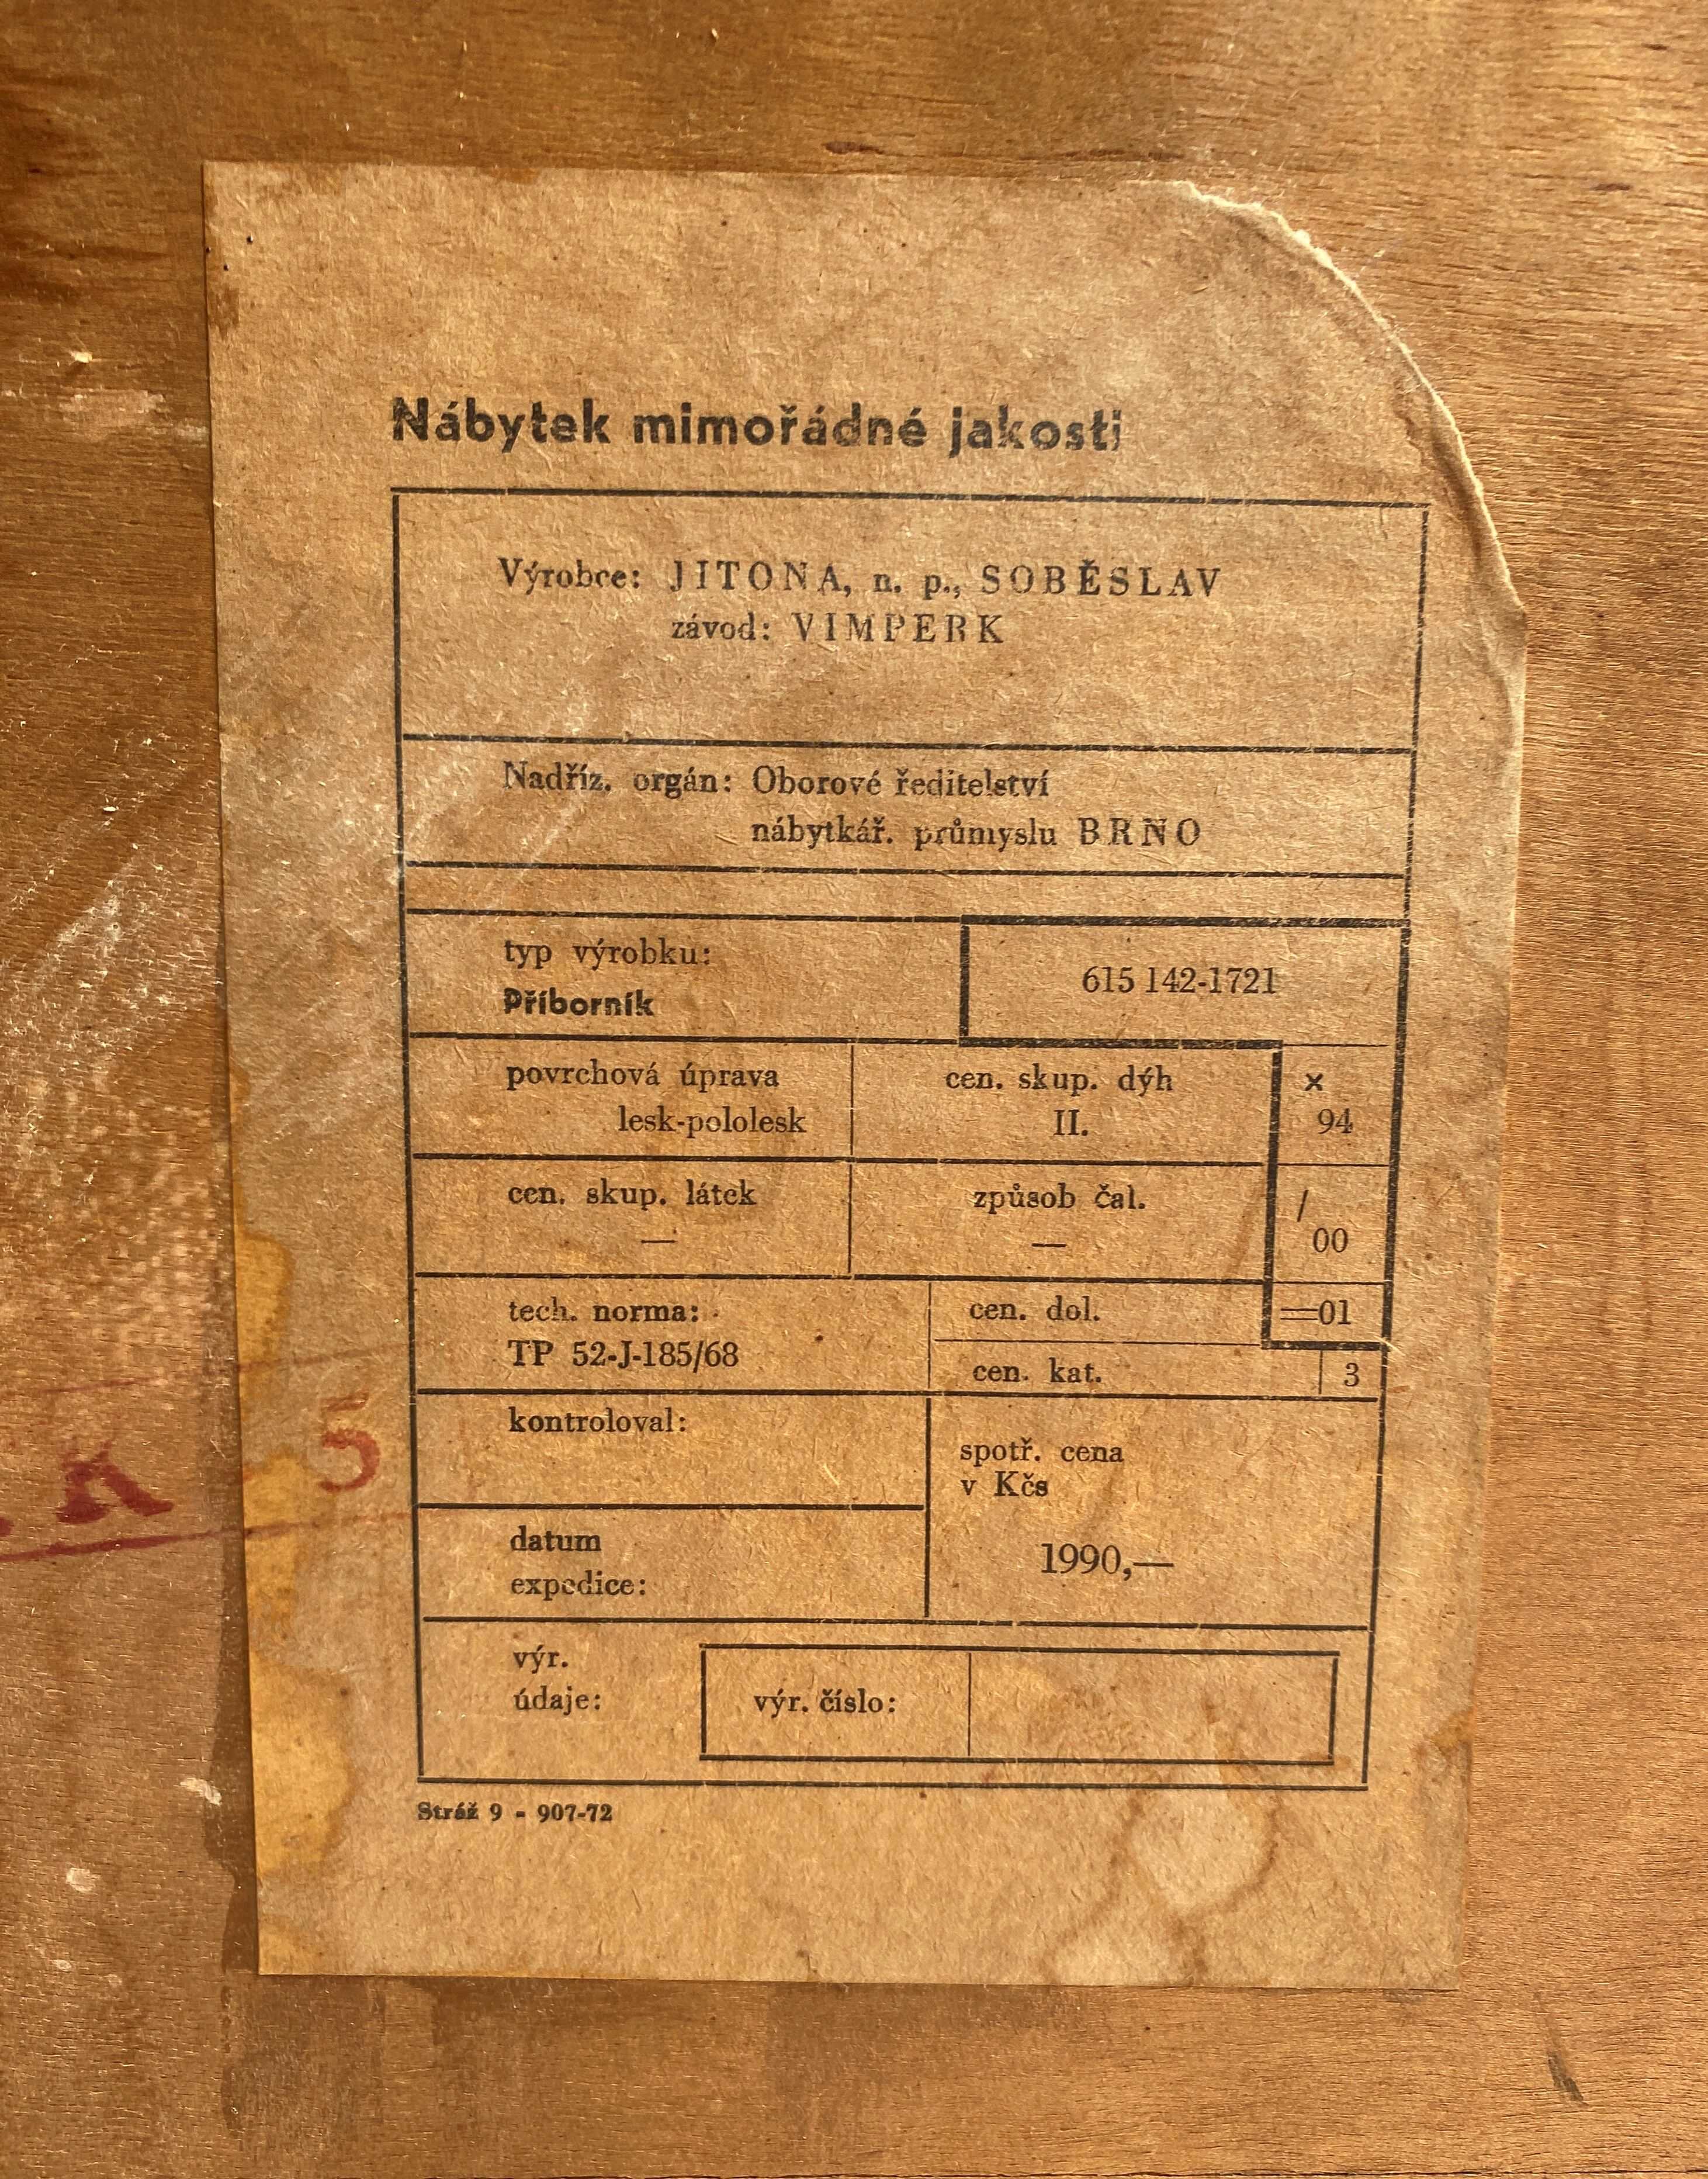 Nábytek mimořádné jakosti
Výrobce: JITONA, n. p., SOBĚSLAV
závod: VIMPERK
Nadříz. orgán: Oborové ředitelství
nábytkář. průmyslu BRNO
typ výrobku:
Příborník
615 142-1721
povrchová úprava
lesk-pololesk
cen. skup. dýh
II.
×
94
cen. skup. látek
—
způsob čal.
—
/
00
tech. norma:
TP 52-J-185/68
cen. dol.
=01
cen. kat.
3
kontroloval:
spotř. cena
v Kčs
1990,—
datum
expedice:
výr.
údaje:
výr. číslo:
Stráž 9 - 907-72
K 5